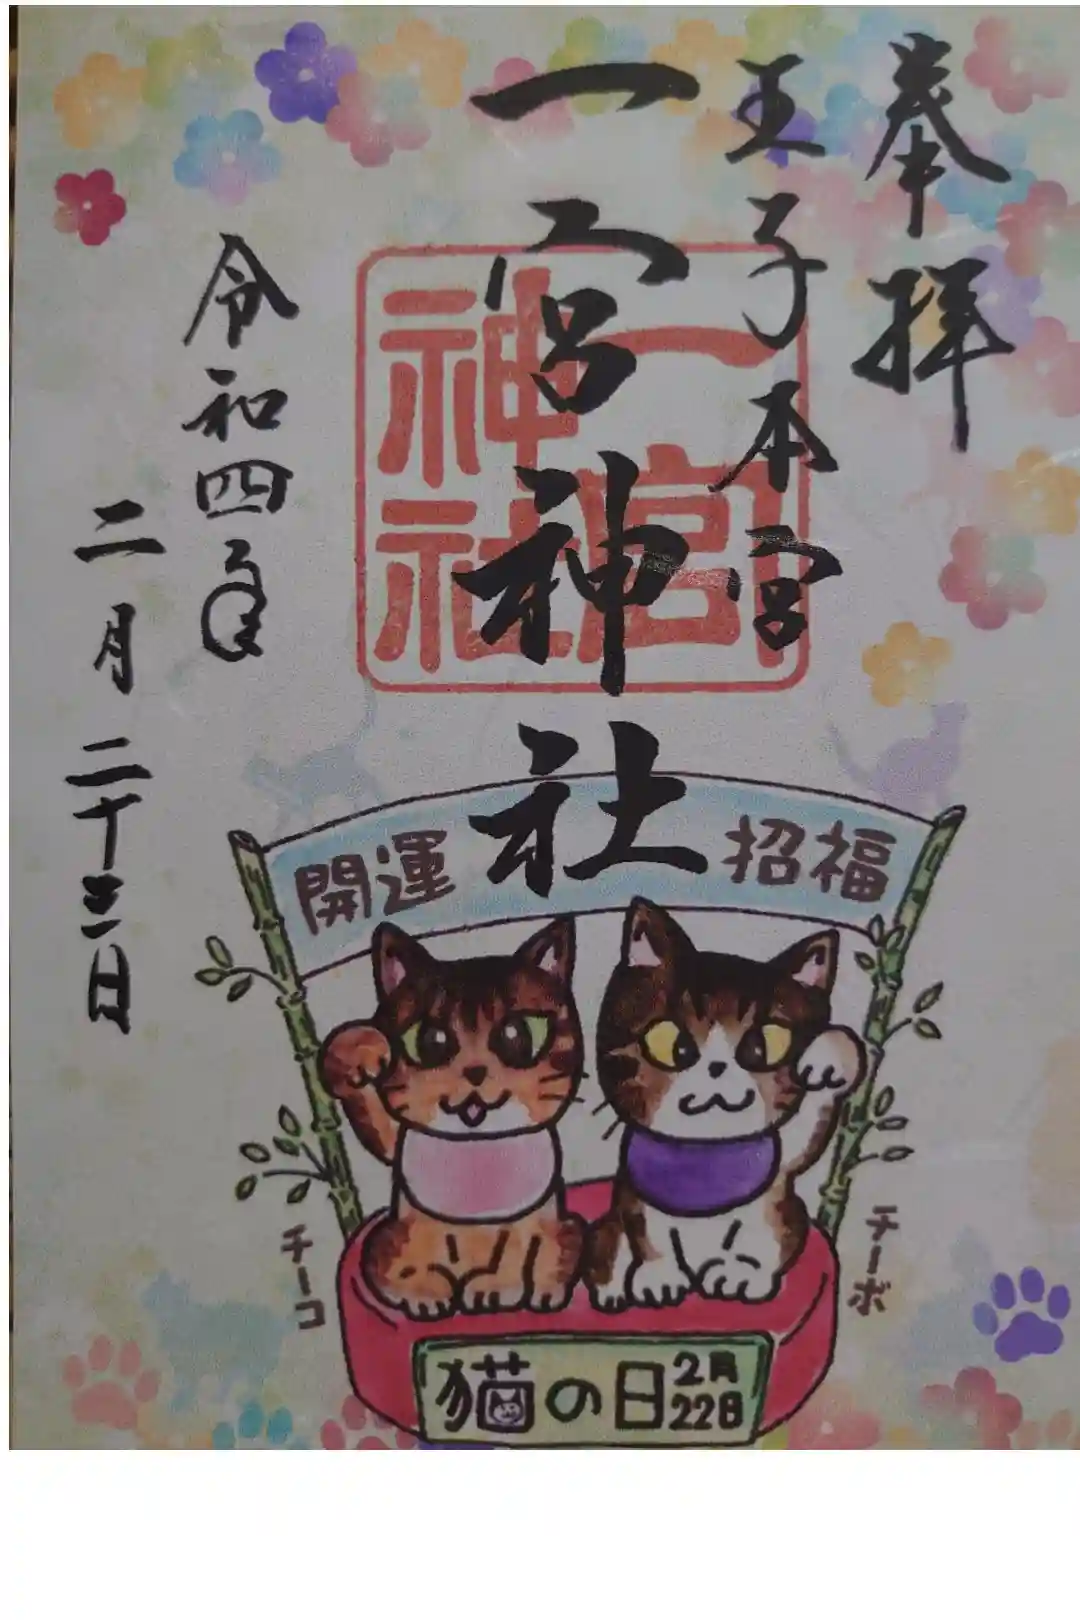 奉拝
王子本宮
一宮神社
一宮
神社
令和四年
二月二十三日
開運 招福
チーコ
チーボ
猫の日 2月22日